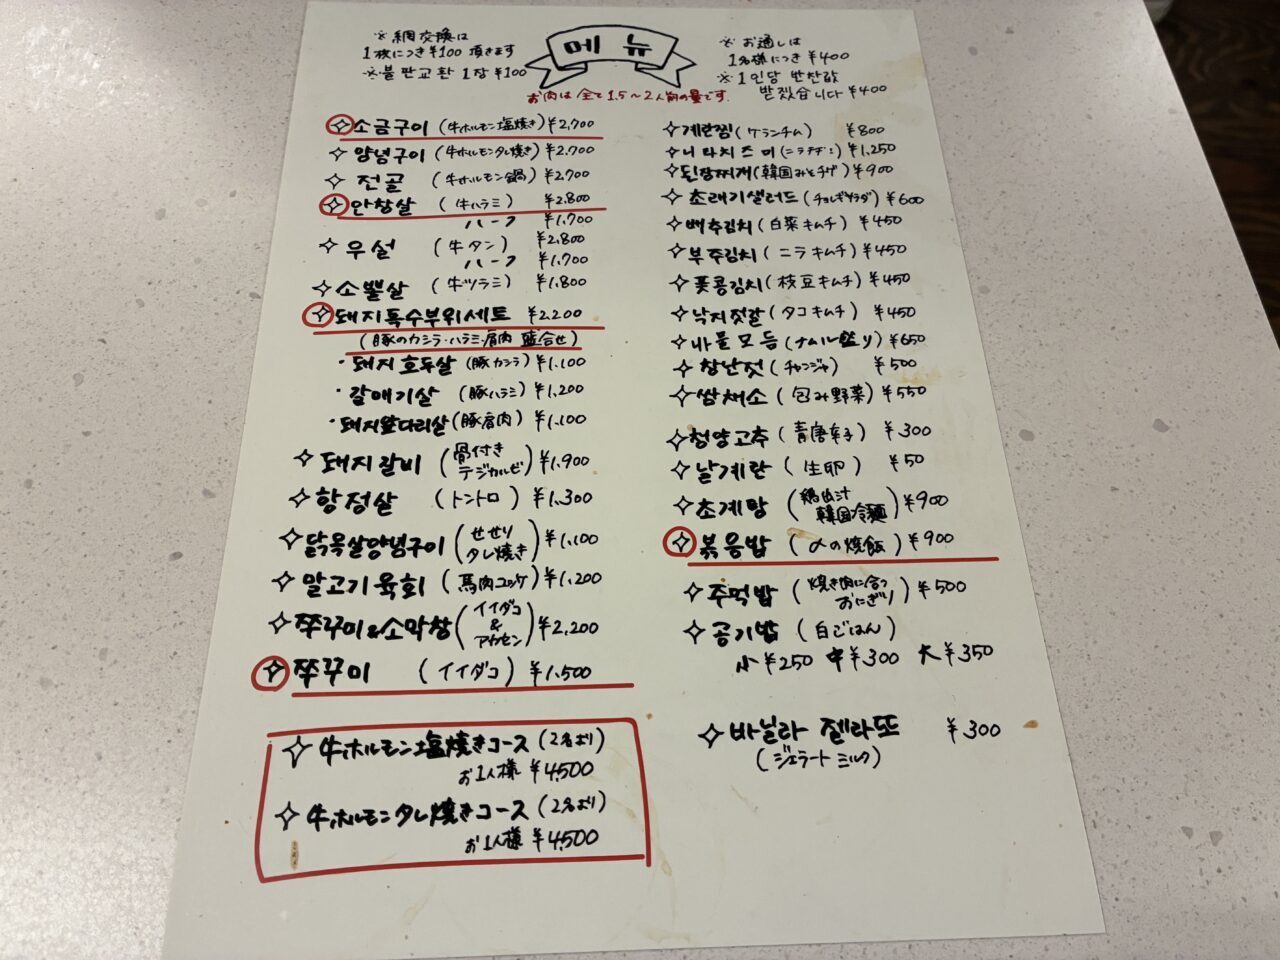 ※ 網交換は
1枚につき¥100 頂きます
※불판교환 1장 ¥100
메뉴
※ お通しは
1名様につき ¥400
※1인당 반찬값
받겠습니다 ¥400
お肉は全て1.5〜2人前の量です.
✧소금구이 (牛ホルモン塩焼き) ¥2,700
✧양념구이 (牛ホルモンタレ焼き) ¥2,700
✧전골 (牛ホルモン鍋) ¥2,700
✧안창살 (牛ハラミ) ¥2,800
ハーフ ¥1,700
✧우설 (牛タン) ¥2,800
ハーフ ¥1,700
✧소뽈살 (牛ツラミ) ¥1,800
✧돼지특수부위세트 ¥2,200
(豚のカシラ・ハラミ・肩肉 盛合せ)
・돼지호두살 (豚カシラ) ¥1,100
・갈매기살 (豚ハラミ) ¥1,200
・돼지앞다리살 (豚肩肉) ¥1,100
✧돼지갈비 (骨付きテジカルビ) ¥1,900
✧항정살 (トントロ) ¥1,300
✧닭목살양념구이 (せせりタレ焼き) ¥1,100
✧말고기육회 (馬肉ユッケ) ¥1,200
✧쭈꾸미&소막창 (イイダコ&アカセン) ¥2,200
✧쭈꾸미 (イイダコ) ¥1,500
✧牛ホルモン塩焼きコース (2名より)
お1人様 ¥4,500
✧牛ホルモンタレ焼きコース (2名より)
お1人様 ¥4,500
✧계란찜 (ケランチム) ¥800
✧니라치즈미 (ニラチヂミ) ¥1,250
✧된장찌개 (韓国みそチゲ) ¥900
✧초래기샐러드 (チョレギサラダ) ¥600
✧배추김치 (白菜キムチ) ¥450
✧부추김치 (ニラキムチ) ¥450
✧풋콩김치 (枝豆キムチ) ¥450
✧낙지젓갈 (タコキムチ) ¥450
✧나물모듬 (ナムル盛り) ¥650
✧창난젓 (チャンジャ) ¥500
✧쌈채소 (包み野菜) ¥550
✧청양고추 (青唐辛子) ¥300
✧날계란 (生卵) ¥50
✧초계탕 (鶏出汁韓国冷麺) ¥900
✧볶음밥 (〆の焼飯) ¥900
✧주먹밥 (焼き肉に合うおにぎり) ¥500
✧공기밥 (白ごはん)
小¥250 中¥300 大¥350
✧바닐라 젤라또 ¥300
(ジェラート ミルク)